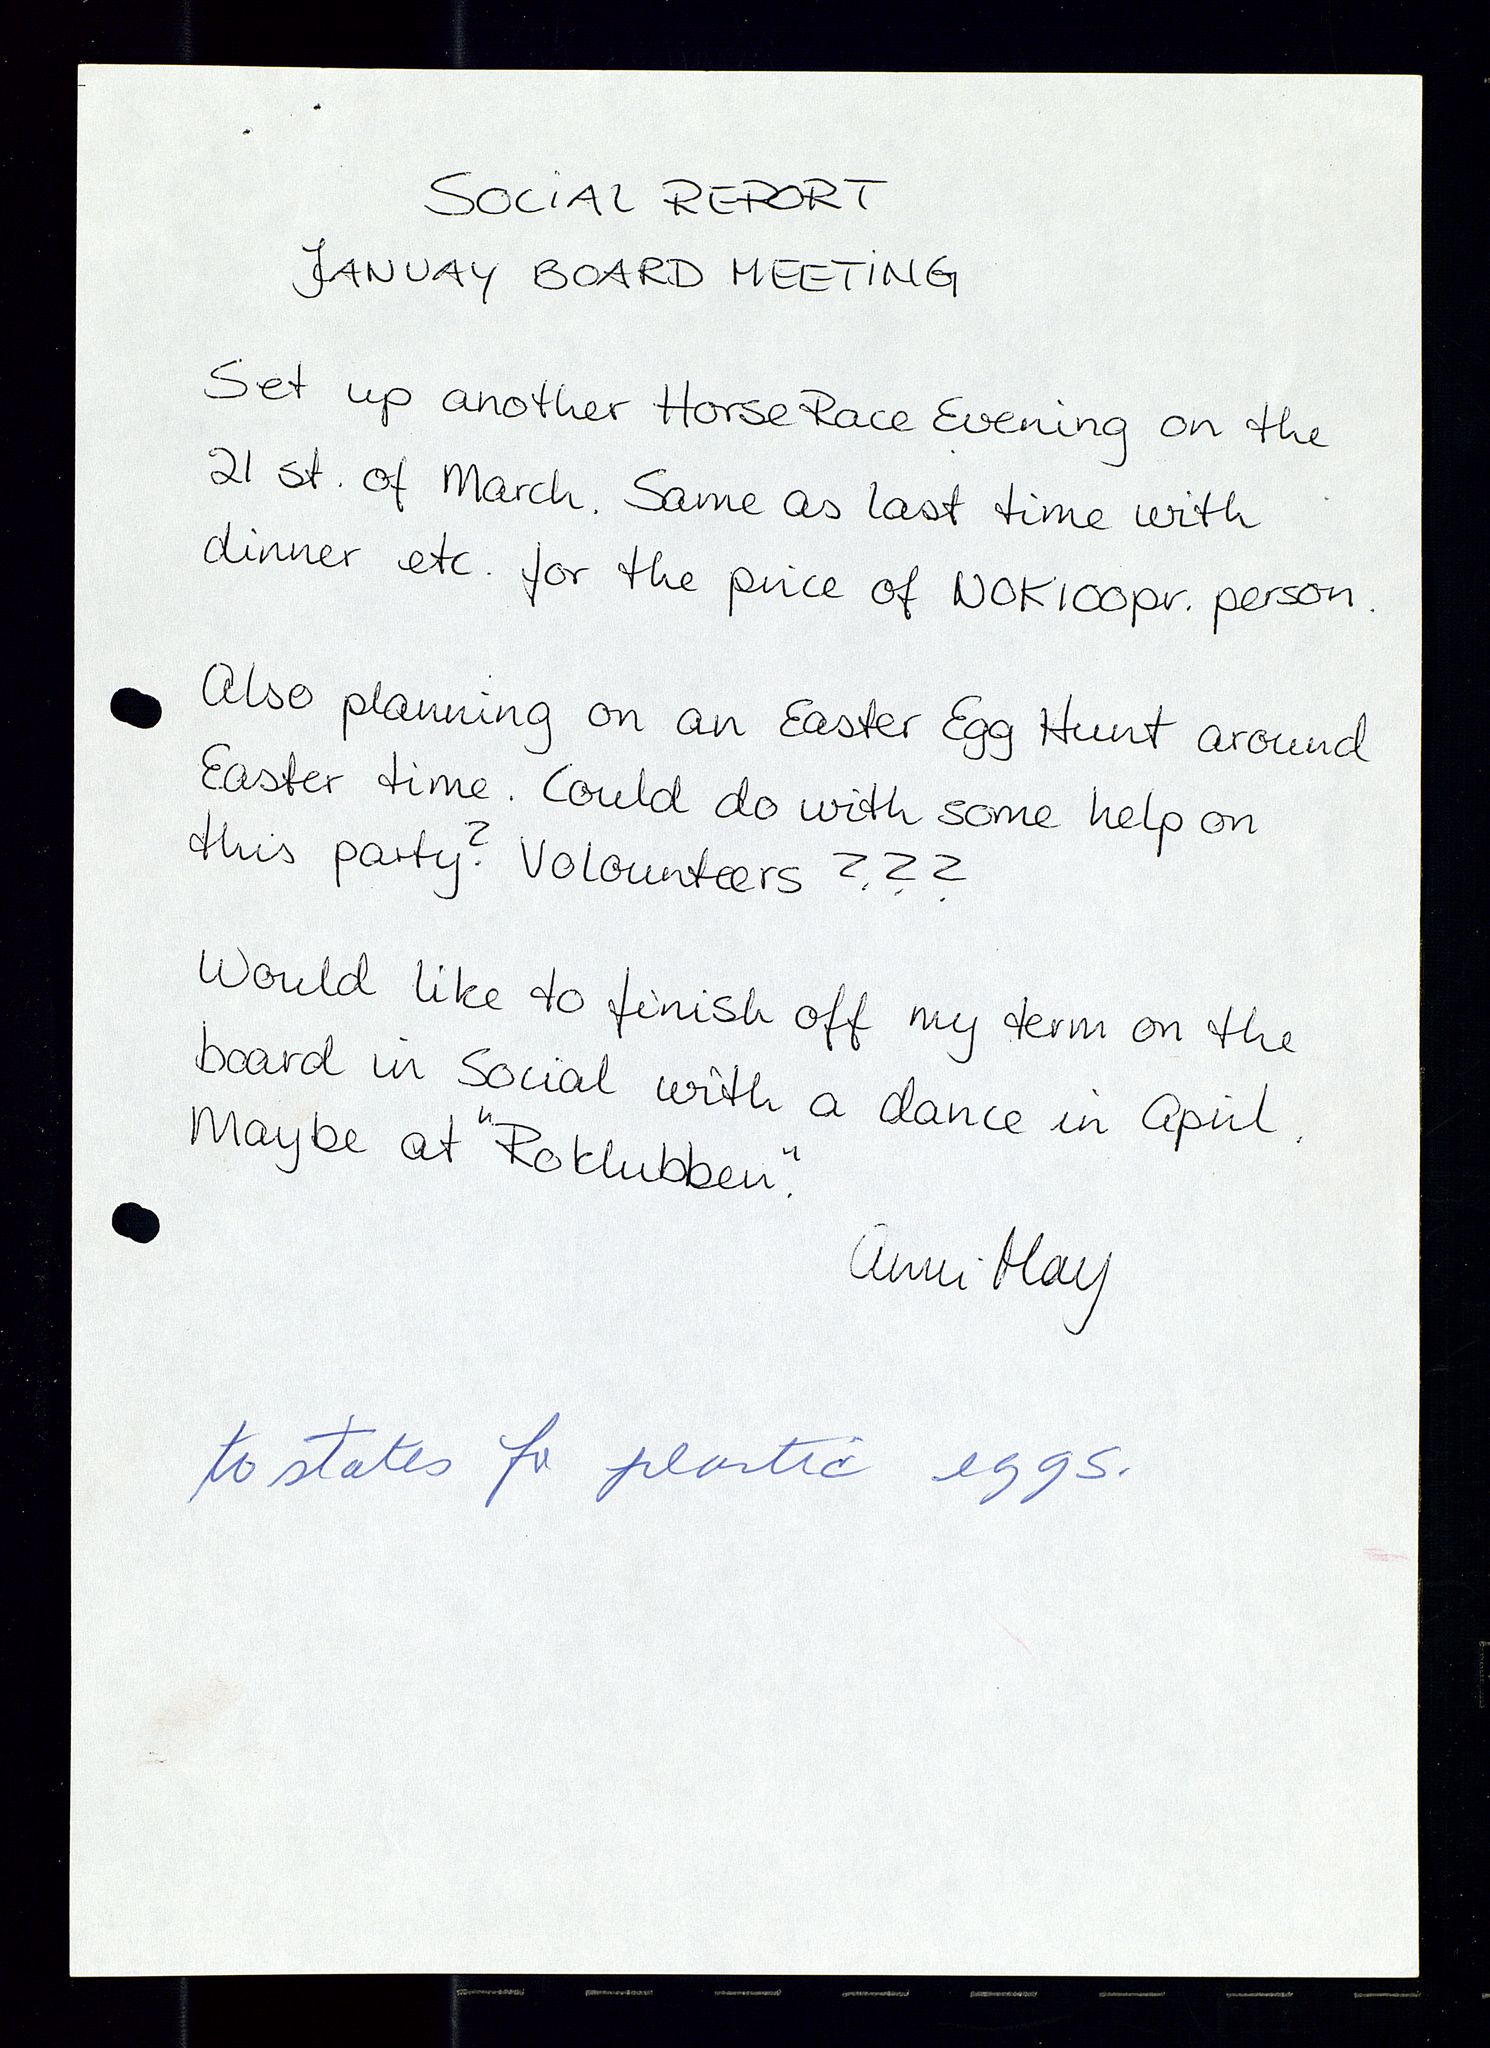 SOCIAL REPORT
JANUAY BOARD MEETING
Set up another Horse Race Evening on the
21 st. of March. Same as last time with
dinner etc. for the price of NOK 100 pr. person.
Also planning on an Easter Egg Hunt around
Easter time. Could do with some help on
this party? Volounteers ???
Would like to finish off my term on the
board in Social with a dance in April.
Maybe at "Roklubben".
Anni May
to states for plastic eggs.